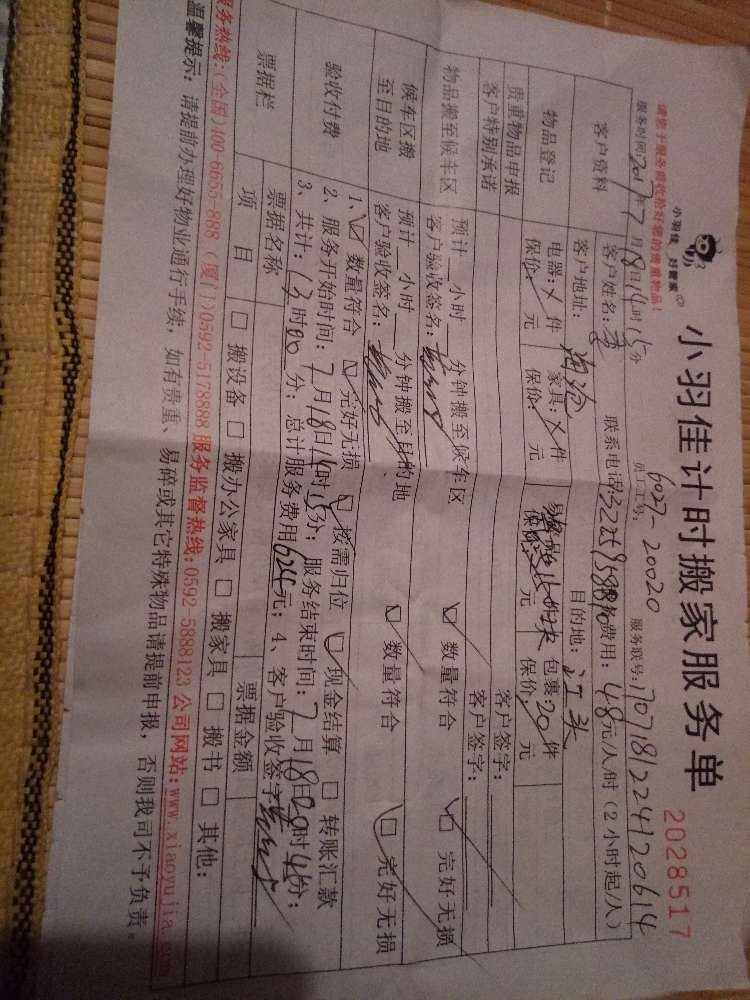 小羽佳 好管家
小羽佳计时搬家服务单
2028517
请您于服务前收拾好您的贵重物品!
员工工号: 6027-20020
服务时间: 2017年7月18日14时15分
服务联号: 170718122412
客户资料
客户姓名:
联系电话:
服务费用: 48元/人/时(2小时起/人)
客户地址:
目的地: 江头
物品登记
电器: 件
保价: 元
家具: 件
保价: 元
保价: 元
包裹 20 件
保价 元
贵重物品申报
客户签字:
客户特别承诺
客户签字:
物品搬至候车区
预计 小时 分钟搬至候车区
客户验收签名:
数量符合
完好无损
候车区搬至目的地
预计 小时 分钟搬至目的地
客户验收签名:
数量符合
完好无损
验收付费
1、 数量符合 完好无损 按需归位 现金结算 转账汇款
2、服务开始时间: 7月18日14时15分; 服务结束时间: 7月18日20时 分;
3、共计: 时00分; 总计服务费用624元; 4、客户验收签字
票据栏
票据名称
票据金额
项目
搬设备 搬办公家具 搬家具 搬书 其他:
服务热线:(全国)400-6655-888 (厦门)0592-5178888 服务监督热线:0592-5888123 公司网站:www.xiaoyujia.com
温馨提示: 请提前办理好物业通行手续, 如有贵重、易碎或其它特殊物品请提前申报, 否则我司不予负责。